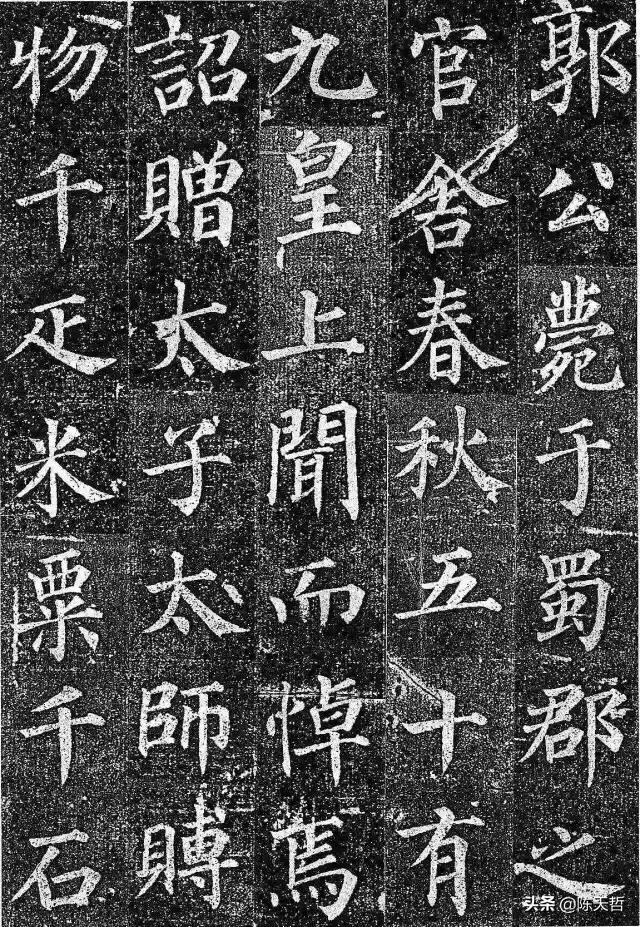 郭公薨于蜀郡之
官舍春秋五十有
九皇上聞而悼焉
詔贈太子太師賻
物千疋米粟千石
头条 @陈天哲